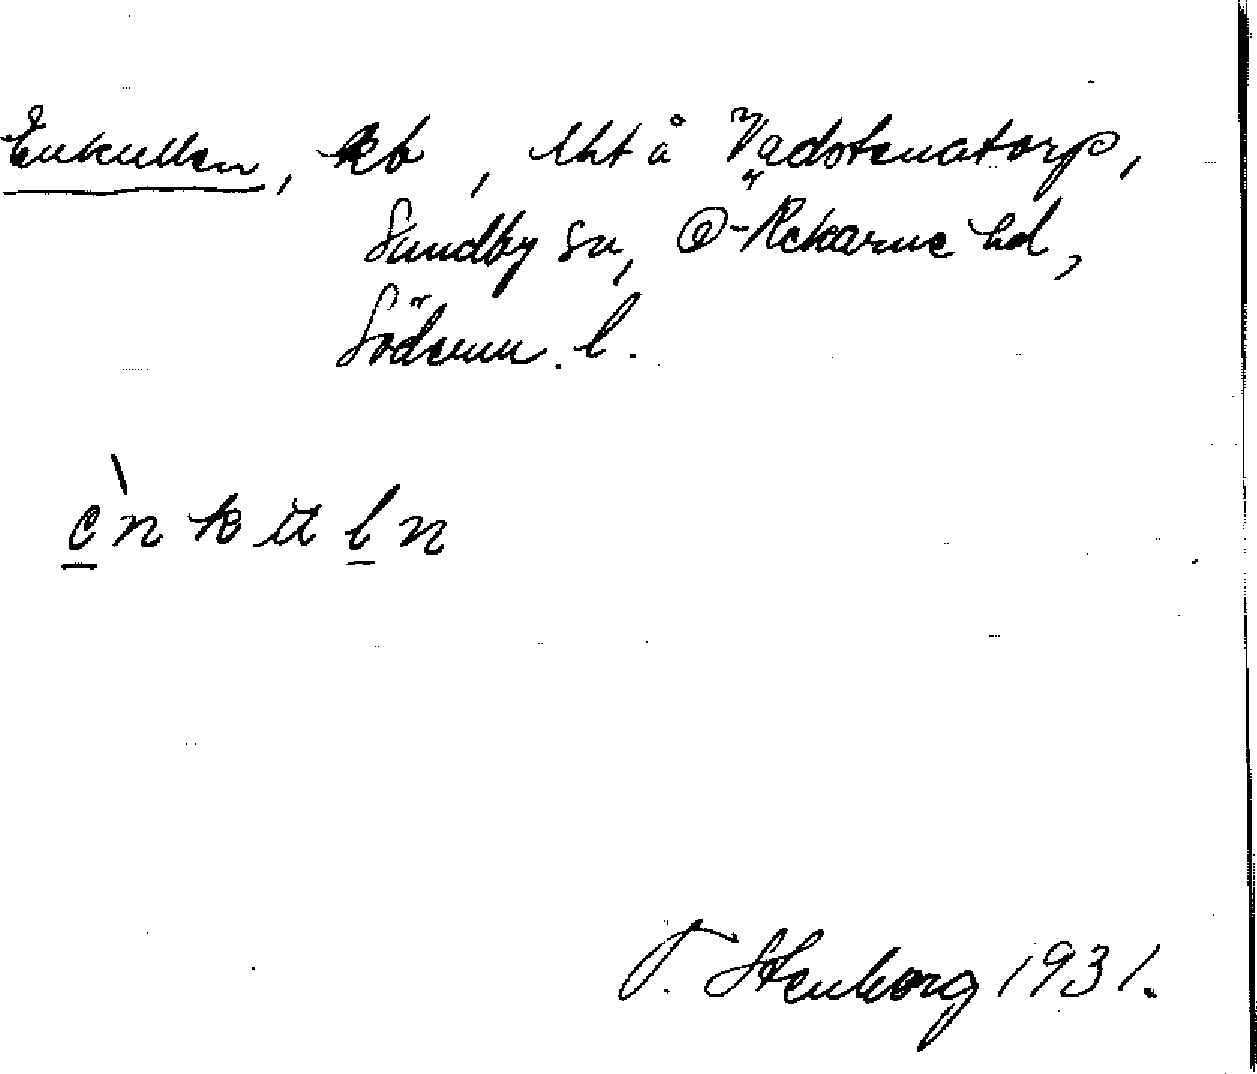 Enkullen, kb, lht å Vadstenatorp,
Sundby sn, Ö-Rekarne hd,
Söderm. l.
è n k u l n
T. Stenborg 1931.